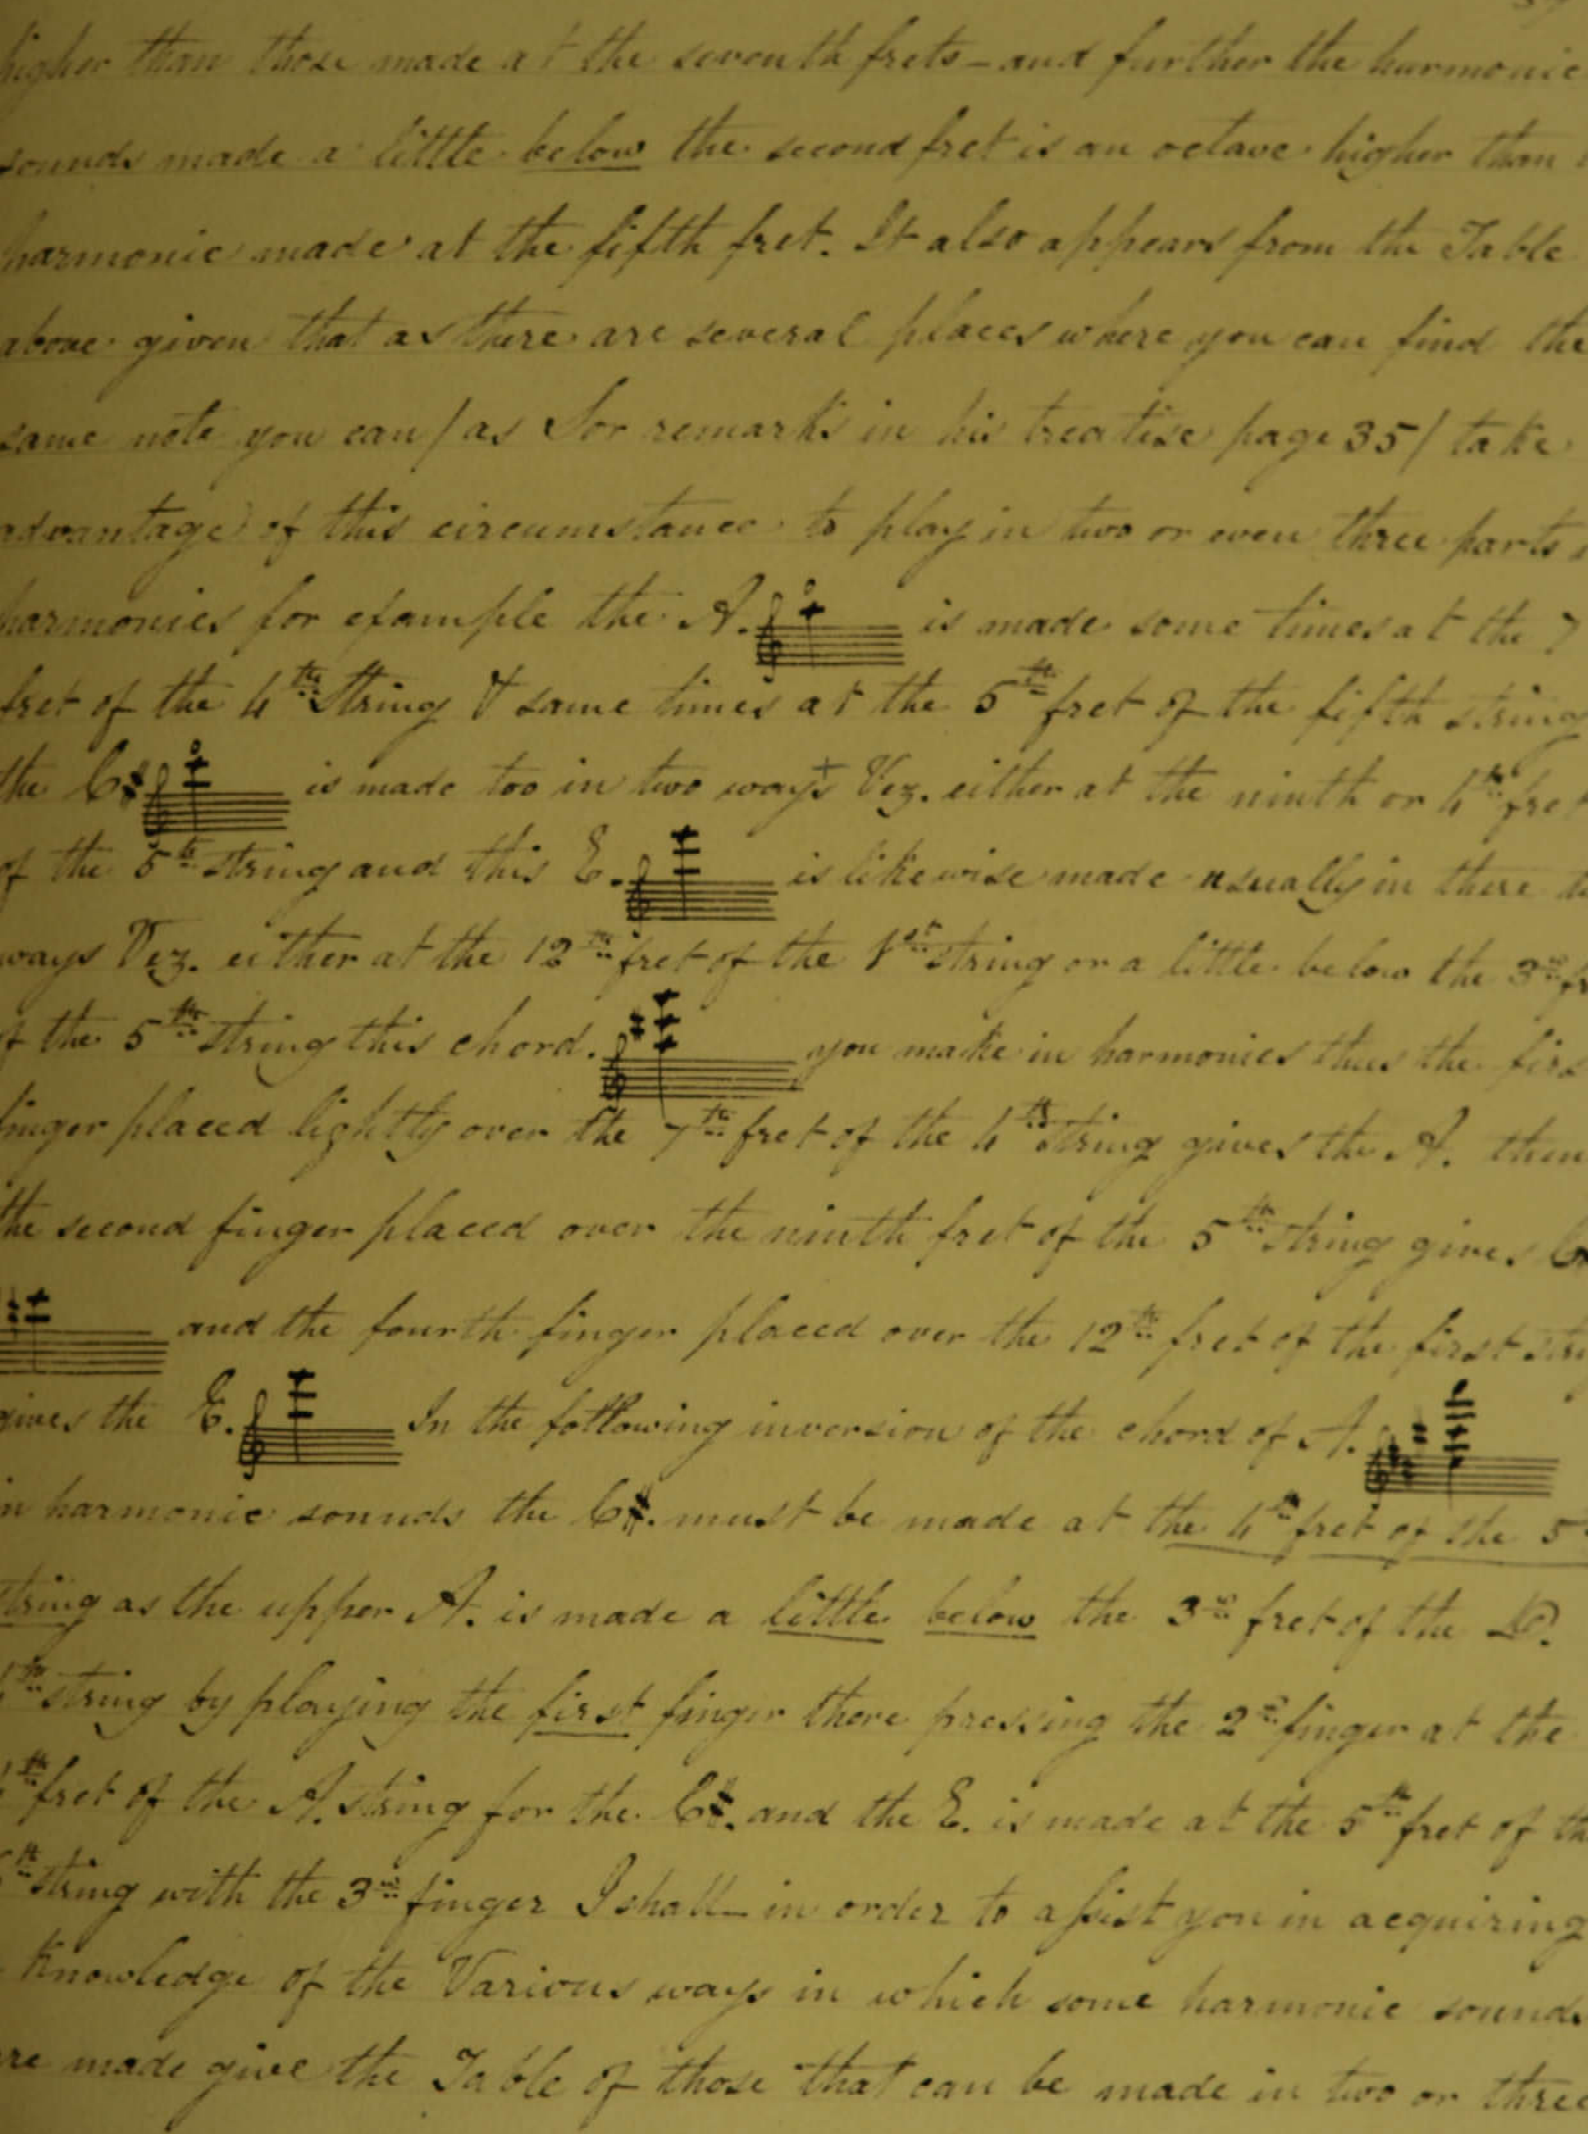 higher than those made at the seventh frets – and further the harmonic
sounds made a little below the second fret is an octave higher than
harmonic made at the fifth fret. It also appears from the Table
above given that as there are several places where you can find the
same note you can / as Sor remarks in his treatise page 35 / take
advantage of this circumstance to play in two or even three parts
harmonics for example the A. is made some times at the 7
fret of the 4th String & same times at the 5th fret of the fifth string
the C# is made too in two ways + Viz. either at the ninth or 4th fret
of the 5th string and this E. is likewise made usually in there
ways Viz. either at the 12th fret of the 1st string or a little below the 3rd
of the 5th string this chord. you make in harmonics thus the firs
finger placed lightly over the 7th fret of the 4th String gives the A. then
the second finger placed over the ninth fret of the 5th String gives C#
and the fourth finger placed over the 12th fret of the first
gives the E. In the following inversion of the chord of A.
in harmonic sounds the C#. must be made at the 4th fret of the 5
string as the upper A. is made a little below the 3rd fret of the D.
4th string by playing the first finger there pressing the 2nd finger at the
4th fret of the A. string for the C#. and the E. is made at the 5th fret of the
6th String with the 3rd finger I shall – in order to assist you in acquiring
Knowledge of the Various ways in which some harmonic sounds
are made give the Table of those that can be made in two or three